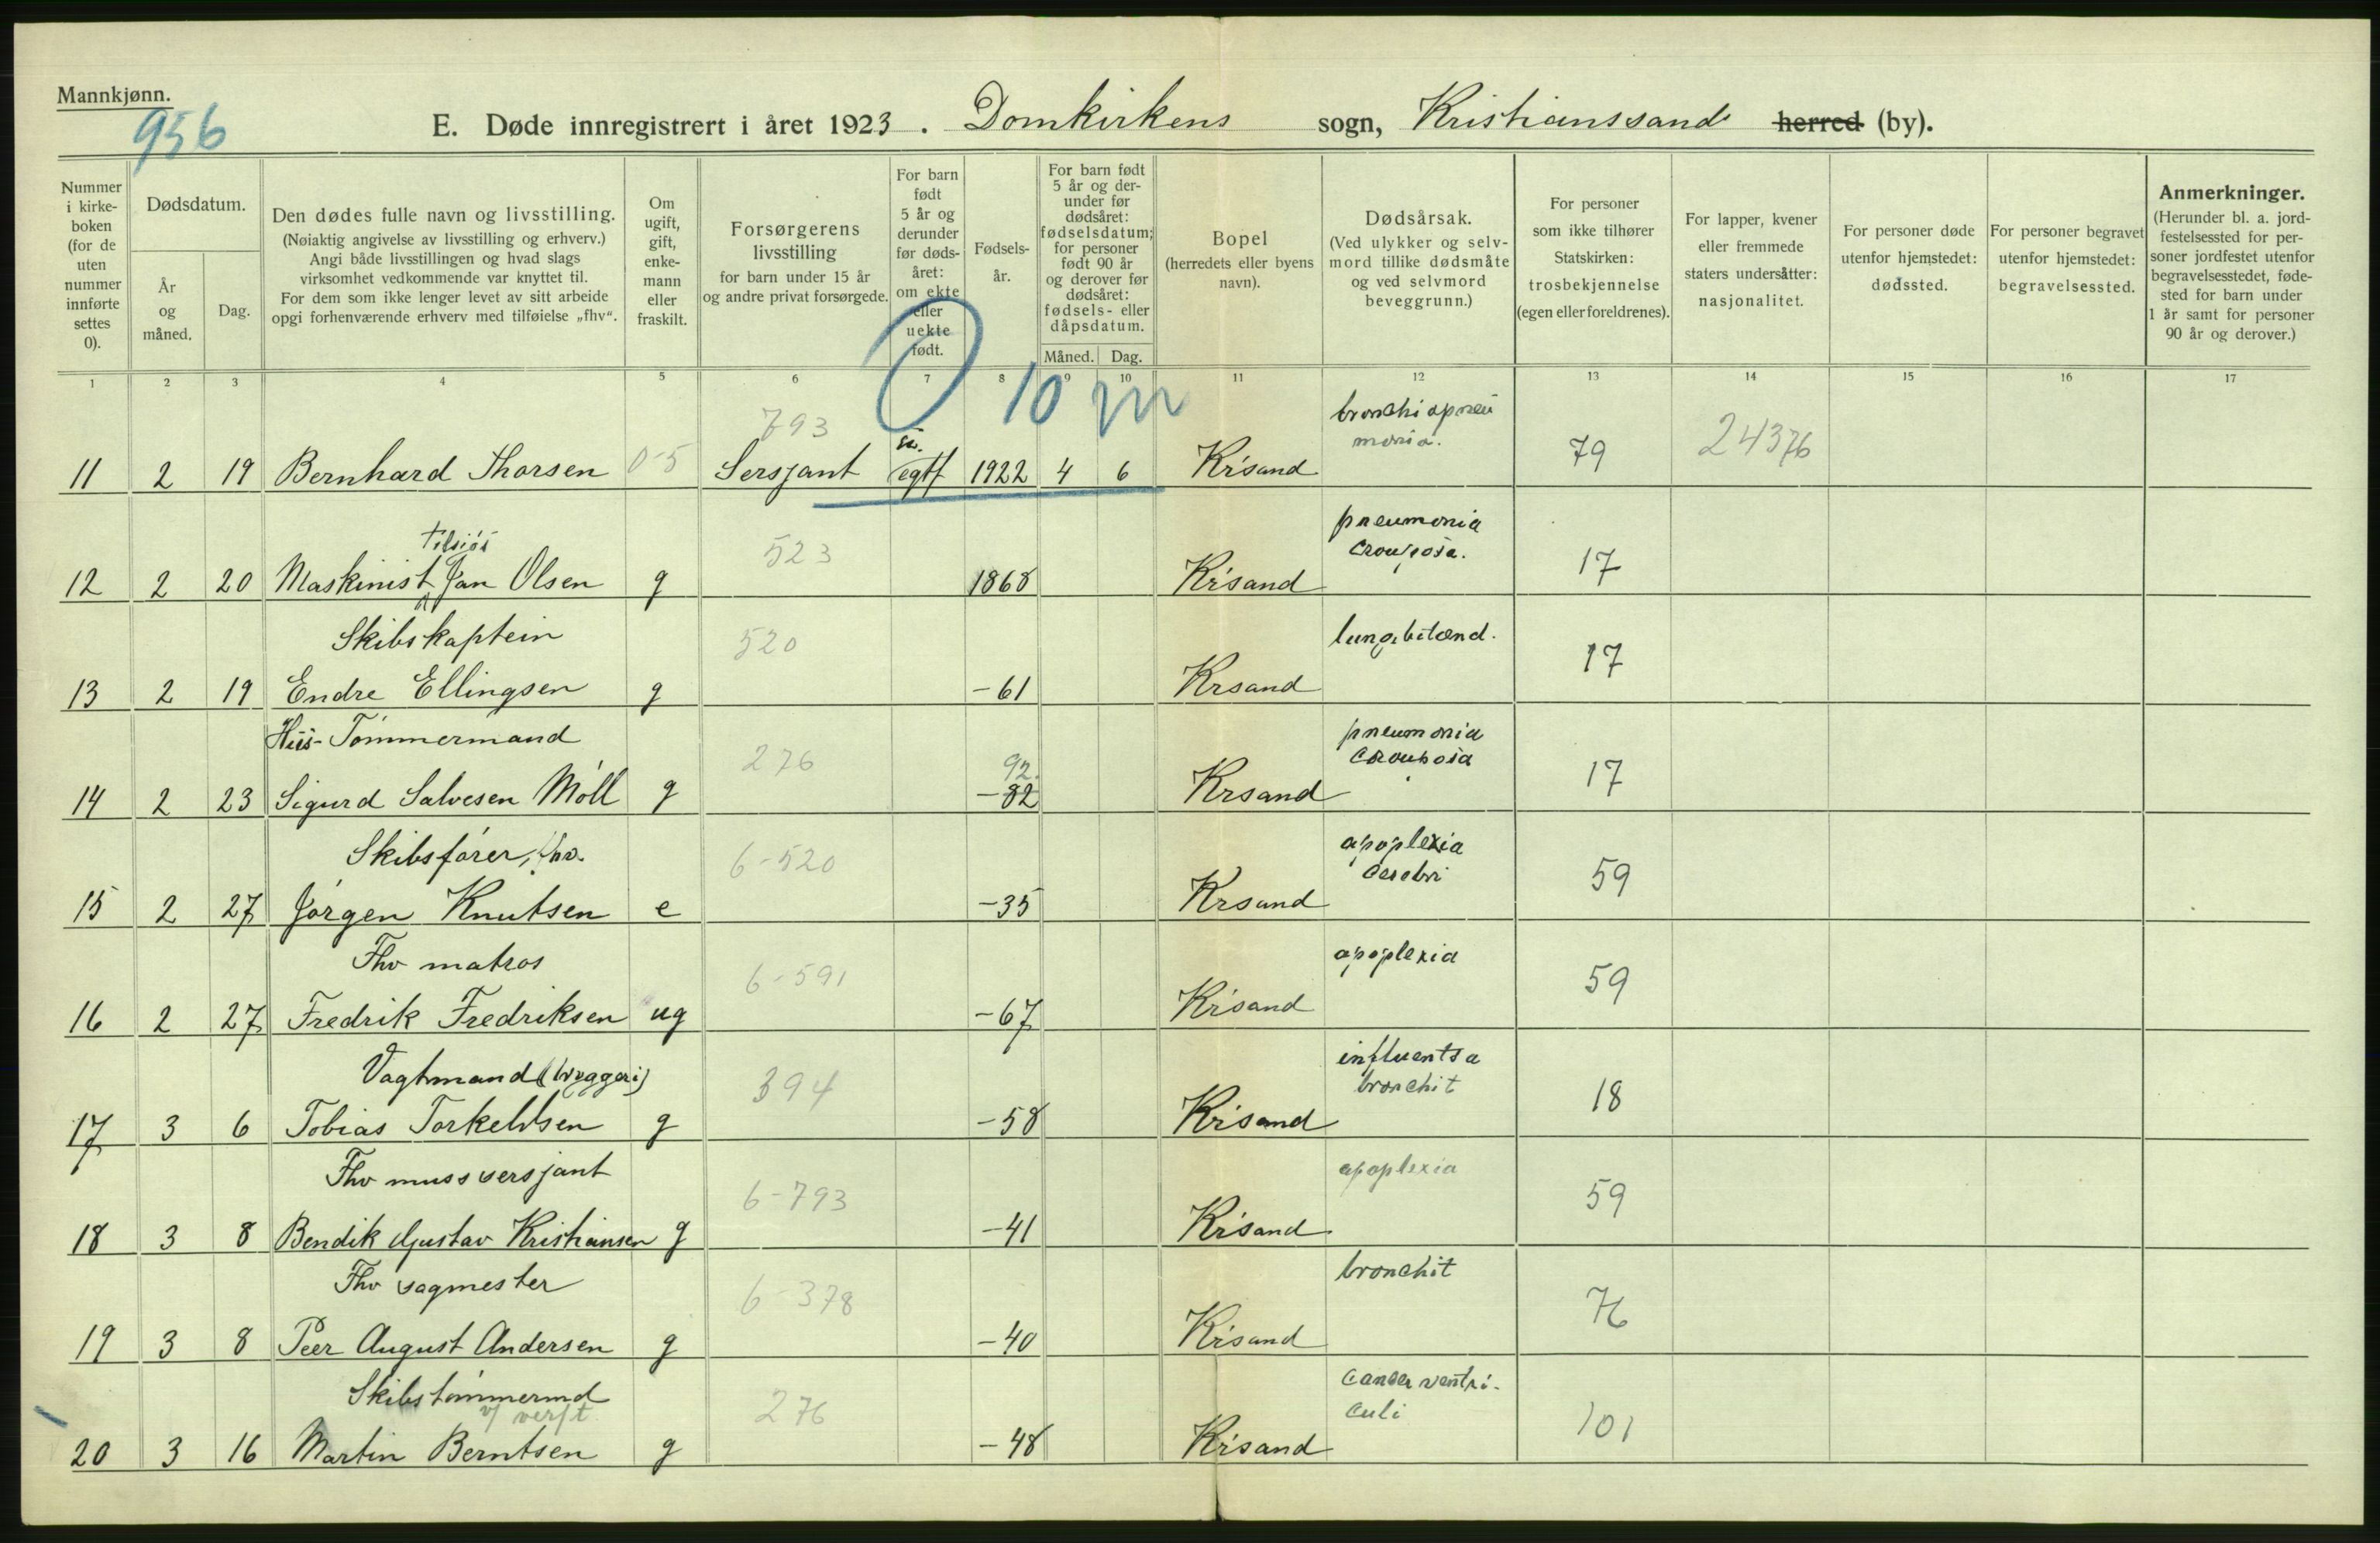 Mannkjønn.
956
E. Døde innregistrert i året 1923. Domkirkens sogn, Kristianssands herred (by).
Nummer i kirkeboken (for de uten nummer innførte settes 0).
Dødsdatum.
År og måned.
Dag.
Den dødes fulle navn og livsstilling.
(Nøiaktig angivelse av livsstilling og erhverv.)
Angi både livsstillingen og hvad slags
virksomhet vedkommende var knyttet til.
For dem som ikke lenger levet av sitt arbeide
opgi forhenværende erhverv med tilføielse „fhv“.
Om ugift, gift, enkemann eller fraskilt.
Forsørgerens livsstilling
for barn under 15 år
og andre privat forsørgede.
For barn født 5 år og derunder før dødsåret: om ekte eller uekte født.
Fødselsår.
For barn født 5 år og derunder før dødsåret: fødselsdatum; for personer født 90 år og derover før dødsåret: fødsels- eller dåpsdatum.
Måned.
Dag.
Bopel
(herredets eller byens navn).
Dødsårsak.
(Ved ulykker og selvmord tillike dødsmåte og ved selvmord beveggrunn.)
For personer som ikke tilhører Statskirken: trosbekjennelse (egen eller foreldrenes).
For lapper, kvener eller fremmede staters undersåtter: nasjonalitet.
For personer døde utenfor hjemstedet: dødssted.
For personer begravet utenfor hjemstedet: begravelsessted.
Anmerkninger.
(Herunder bl. a. jordfestelsessted for personer jordfestet utenfor begravelsesstedet, fødested for barn under 1 år samt for personer 90 år og derover.)
1 2 3 4 5 6 7 8 9 10 11 12 13 14 15 16 17
0 10 m
793 bronchiopneumonia.
11 2 19 Bernhard Thorsen 0-5 Sersjant egtf 1922 4 6 Kr'sand 79 24376
tilsjøs 523 pneumonia crouposa.
12 2 20 Maskinist Jan Olsen g 1868 Kr'sand 17
Skibskaptein 520 lungebetænd.
13 2 19 Endre Ellingsen g -61 Krsand 17
Hus-Tømmermand 276 92. pneumonia crouposa
14 2 23 Sigurd Salvesen Möll g -82 Krsand 17
Skibsfører, fhv. 6-520 apoplexia cerebri
15 2 27 Jørgen Knutsen e -35 Krsand 59
Fhv matros 6-591 apoplexia
16 2 27 Fredrik Fredriksen ug -67 Kr'sand 59
Vagtmand (bryggeri) 394 influentsa bronchit
17 3 6 Tobias Torkeldsen g -58 Kr'sand 18
Fhv muss sersjant 6-793 apoplexia
18 3 8 Bendik Gustav Kristiansen g -41 Kr'sand 59
Fhv sagmester 6-378 bronchit
19 3 8 Peer August Andersen g -40 Kr'sand 76
Skibstømmermd v/ verft 276 cancer ventriculi
20 3 16 Martin Berntsen g -48 Kr'sand 101